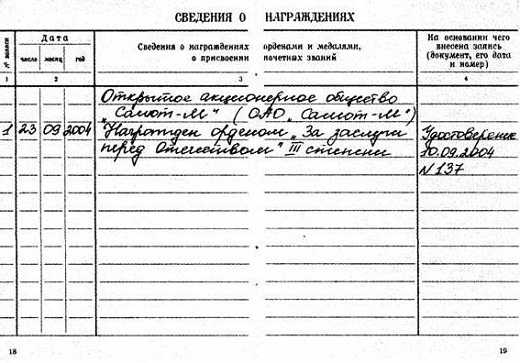 СВЕДЕНИЯ О НАГРАЖДЕНИЯХ
№ записи
Дата
Сведения о награждениях орденами и медалями,
о присвоении почетных званий
На основании чего
внесена запись
(документ, его дата
и номер)
число месяц год
1 2 3 4
Открытое акционерное общество
„Салют-М“ (ОАО „Салют-М“)
1 23 09 2004 Награжден орденом „За заслуги Удостоверение
перед Отечеством“ III степени 10.09.2004
N 137
18 19